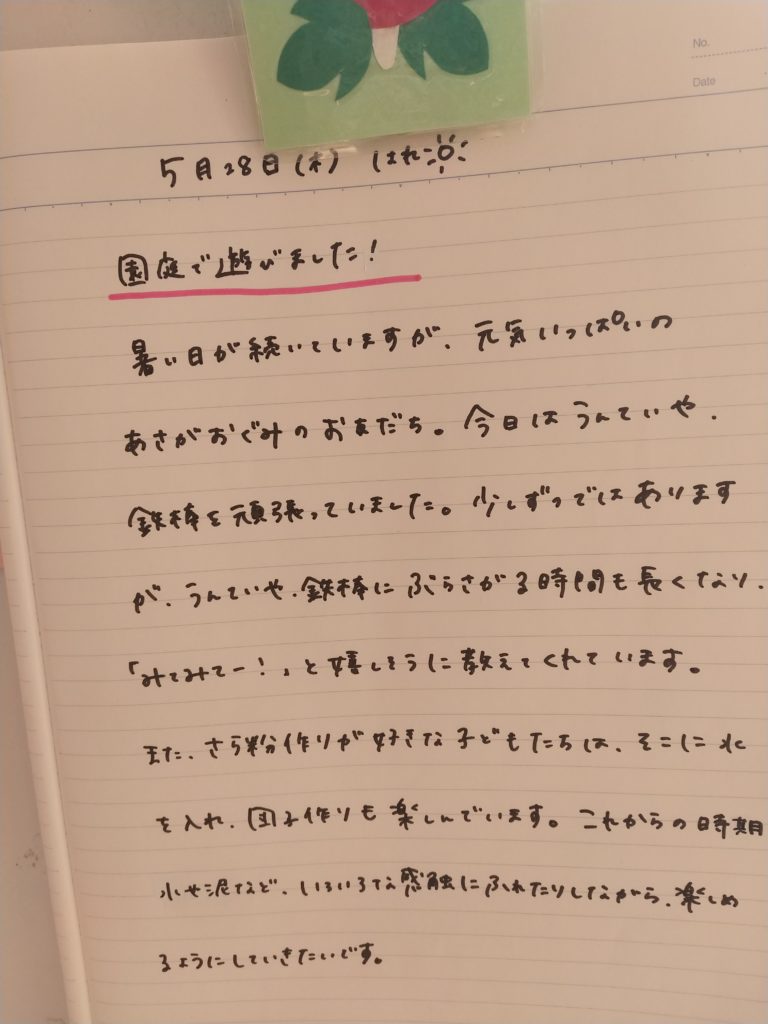 No.
Date
5月28日(木) はれ
園庭で遊びました!
暑い日が続いていますが、元気いっぱいの
あさがおぐみのおともだち。今日はうんていや、
鉄棒を頑張っていました。少しずつではあります
が、うんていや、鉄棒にぶらさがる時間も長くなり、
「みてみてー!」と嬉しそうに教えてくれています。
また、さら粉作りが好きな子どもたちは、そこに水
を入れ、団子作りも楽しんでいます。これからの時期
水や泥など、いろいろな感触にふれたりしながら、楽しめ
るようにしていきたいです。